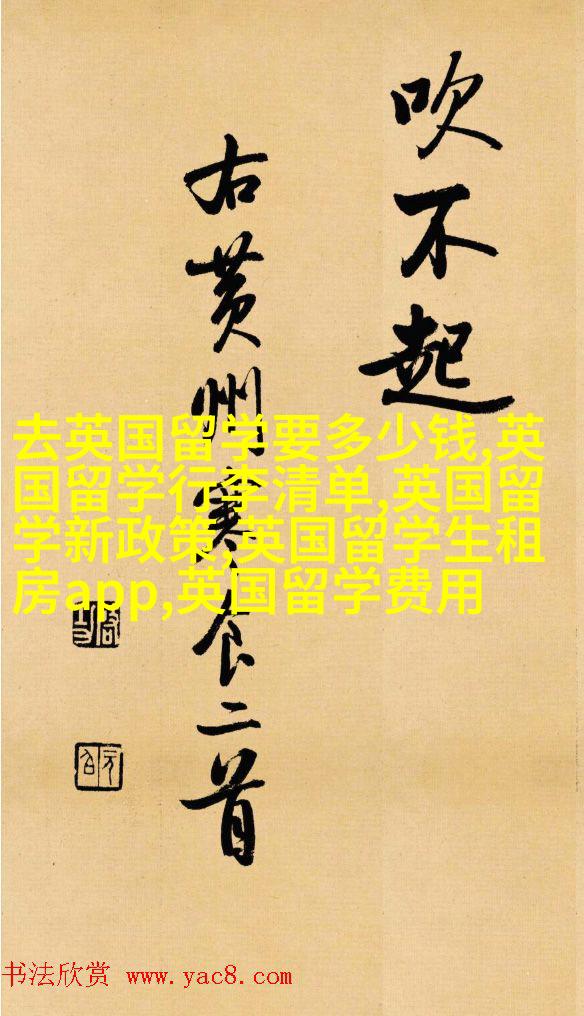 吹不起
右黄州寒食二首
去英国留学要多少钱,英
国留学行李清单,英国留
学新政策,英国留学生租
房app,英国留学费用
书法欣赏 www.yac8.com